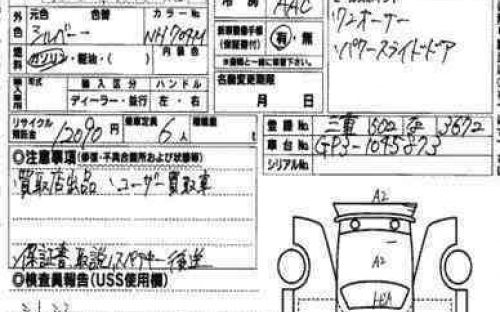 外色 元色 色替 カラーNo 冷房 AAC
シルバー NH709M
燃料 ガソリン・軽油・( ) 内装色
ワンオーナー
パワースライドドア
(保証書付) 有・無
名義変更期限
月 日
型式 輸入区分 ハンドル
ディーラー・並行 左・右
リサイクル預託金 12090 円 乗車定員 6人 積載量 t
登録No. 三重 500 な 3672
車台No. GP3-1045873
シリアルNo.
◎注意事項(修復・不具合箇所および状態等)
買取店出品、ユーザー買取車
保証書 取説 スペアキー 後送
◎検査員報告(USS使用欄)
A2
A2